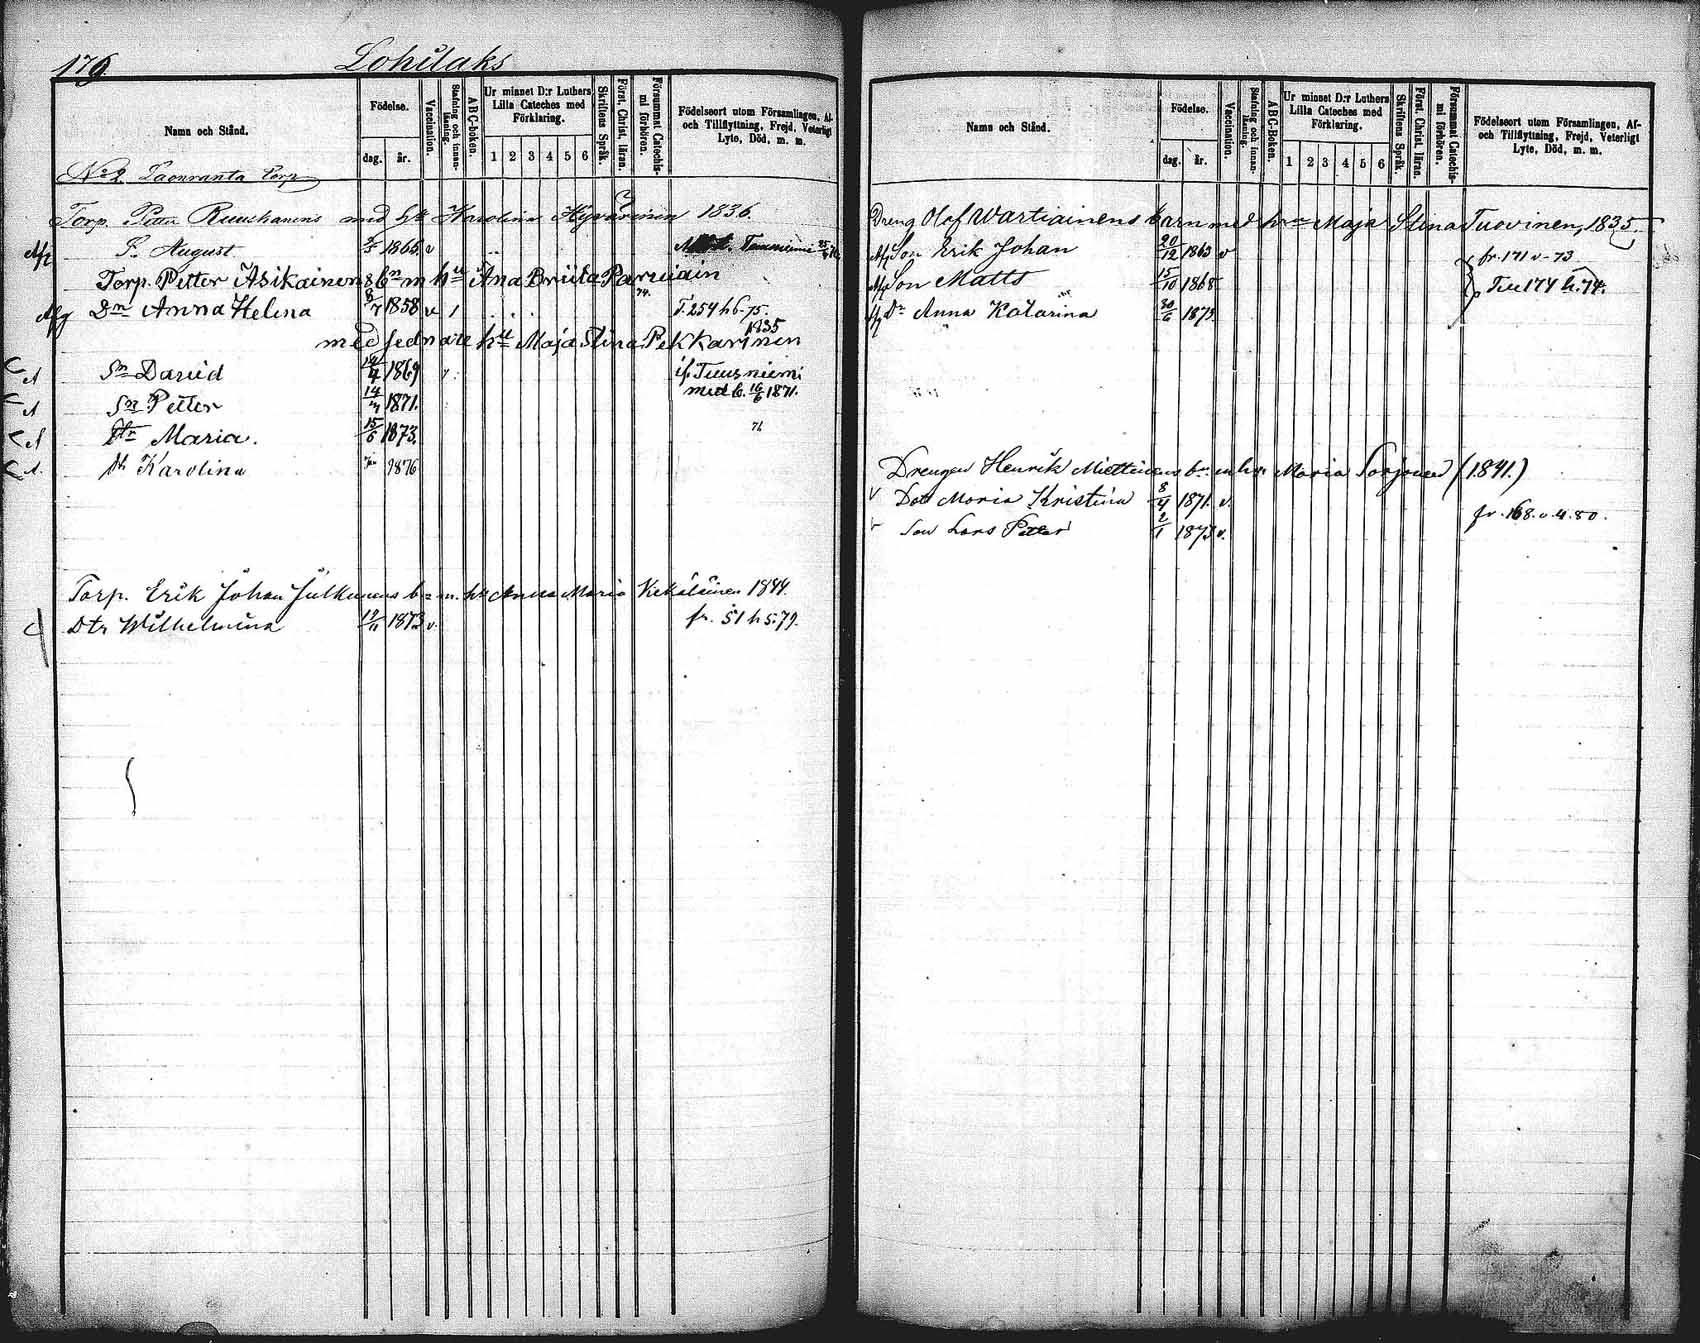 176
Lohilaks
Namn och Stånd.
Födelse.
dag.
år.
Vaccination.
Stafning och innan-läsning.
ABC-boken.
Ur minnet D:r Luthers Lilla Cateches med Förklaring.
1 2 3 4 5 6
Skriftens Språk.
Först. Christ. läran.
Försummat Catechis-mi förhören.
Födelseort utom Församlingen, Af-
och Tillflyttning, Frejd, Veterligt
Lyte, Död, m. m.
No 2 torp
Torp. Petter Ruuskanens med hu Karolina Hyvärinen 1836.
Afg S. August 1866 v
Torp. Petter Asikainens bn m hu Ana Briita
Afg Dn Anna Helena 8/7 1858 v 1 T. 254 h 6-75.
med sednare hu Maja Stina Pekkarinen 1835
Sn David 1869 if Tuusniemi
Sn Petter 14 1871. med b. 16/6 1871.
Dtr Maria. 15/6 1873.
Karolina 1876
Torp. Erik Johan Julkunens bn m. hu Anna Maria Kekäläinen 1844.
Dtr Wilhelmina 1873 v. fr. 51 h 5. 79.
Namn och Stånd.
Födelse.
dag.
år.
Vaccination.
Stafning och innan-läsning.
ABC-Boken.
Ur minnet D:r Luthers Lilla Cateches med Förklaring.
1 2 3 4 5 6
Skriftens Språk.
Först Christ. läran.
Försummat Catechis-mi förhören.
Födelseort utom Församlingen, Af-
och Tillflyttning, Frejd, Veterligt
Lyte, Död, m. m.
Dreng Olof Wartiainens barn med hrn Maja Stina Tuovinen, 1835
Afg Son Erik Johan 20/12 1863 v fr. 171 v-73
Afg Son Matts 15/10 1868 Till 174 h. 74.
Afg Dr Anna Katarina 30/6 1873
Drengen Henrik Miettinens bn m hu Maria Sorjonen (1841.)
v Dotr Maria Kristina 8/4 1871. v.
fr. 168. v. 4. 80.
v Son Lars Petter 2/1 1873 v.